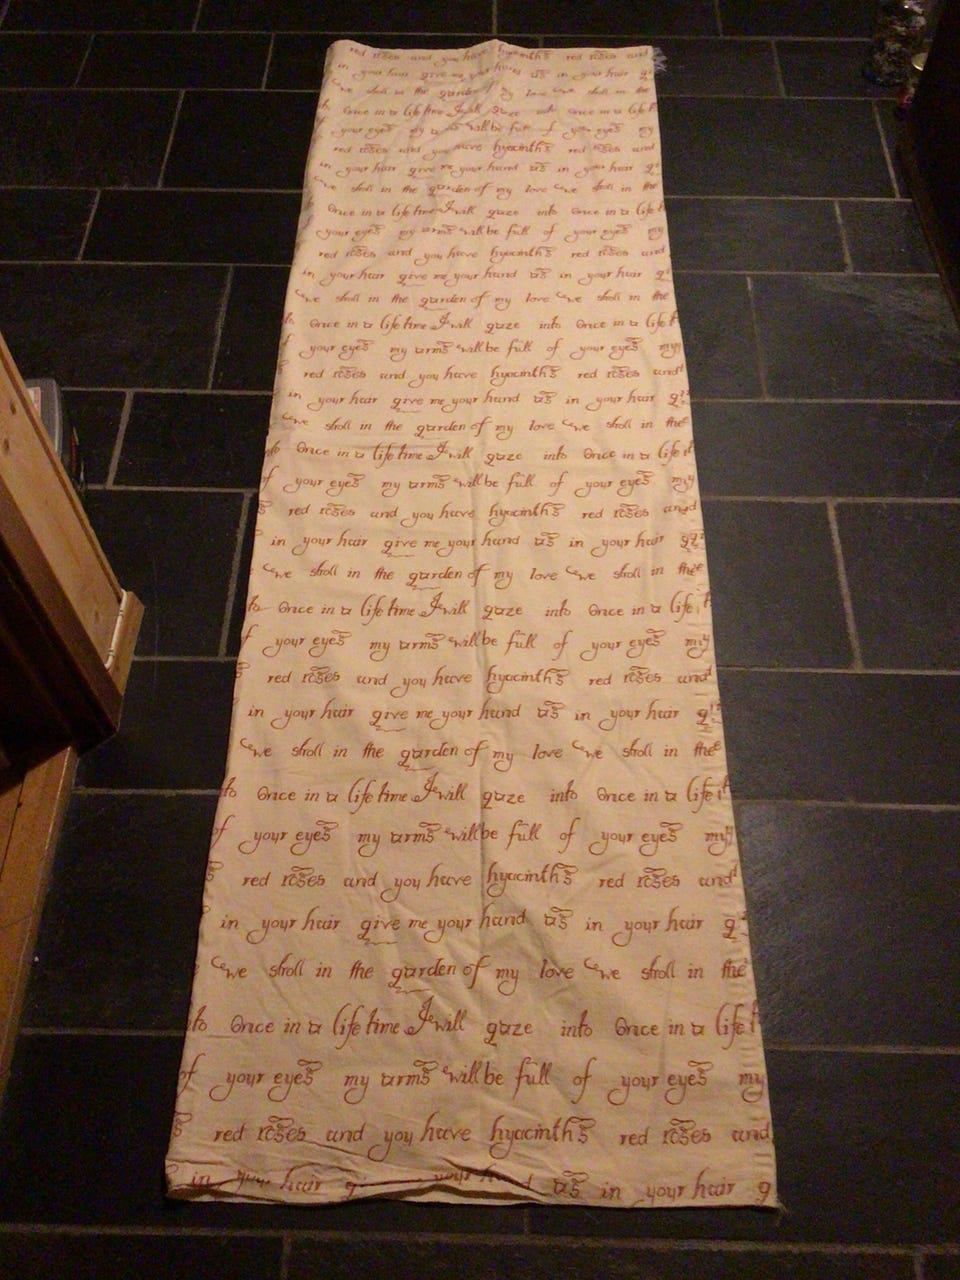 red roses and you have hyacinths red roses and
in your hair give me your hand as in your hair
we stroll in the garden of my love we stroll in the
once in a life time I will gaze into once in a life t
your eyes my arms will be full of your eyes my
red roses and you have hyacinths red roses and
in your hair give me your hand as in your hair gi
we stroll in the garden of my love we stroll in the
once in a life time I will gaze into once in a life t
your eyes my arms will be full of your eyes my
red roses and you have hyacinths red roses and
in your hair give me your hand as in your hair gi
we stroll in the garden of my love we stroll in the
to once in a life time I will gaze into once in a life t
of your eyes my arms will be full of your eyes my
red roses and you have hyacinths red roses and
in your hair give me your hand as in your hair gi
we stroll in the garden of my love we stroll in the
to once in a life time I will gaze into once in a life t
of your eyes my arms will be full of your eyes my
s red roses and you have hyacinths red roses and
in your hair give me your hand as in your hair gi
we stroll in the garden of my love we stroll in the
to once in a life time I will gaze into once in a life t
of your eyes my arms will be full of your eyes my
s red roses and you have hyacinths red roses and
in your hair give me your hand as in your hair gi
we stroll in the garden of my love we stroll in the
to once in a life time I will gaze into once in a life t
of your eyes my arms will be full of your eyes my
s red roses and you have hyacinths red roses and
in your hair give me your hand as in your hair g
we stroll in the garden of my love we stroll in the
to once in a life time I will gaze into once in a life t
of your eyes my arms will be full of your eyes my
s red roses and you have hyacinths red roses and
in your hair g your hand as in your hair g